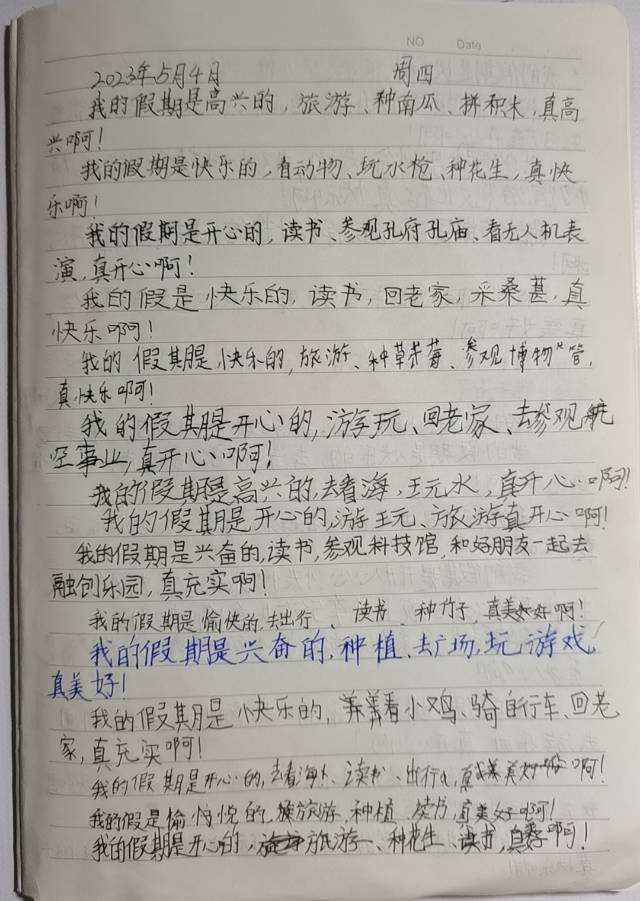 NO Date
2023年5月4月 周四
我的假期是高兴的，旅游、种南瓜、拼积木，真高
兴啊！
我的假期是快乐的，看动物、玩水枪、种花生，真快
乐啊！
我的假期是开心的，读书、参观孔府孔庙、看无人机表
演，真开心啊！
我的假是快乐的，读书，回老家，采桑葚，真
快乐啊！
我的假期是快乐的，旅游、种草莓、参观博物管，
真快乐啊！
我的假期是开心的，游玩、回老家、去参观航
空事业，真开心啊！
我的假期是高兴的，去看海，玩水，真开心啊！
我的假期是开心的，游玩、旅游真开心啊！
我的假期是兴奋的，读书，参观科技馆，和好朋友一起去
融创乐园，真充实啊！
我的假期是愉快的，去出行、读书、种竹子，真美好啊！
我的假期是兴奋的，种植、去广场，玩游戏，
真美好！
我的假期是快乐的，养着小鸡、骑自行车、回老
家，真充实啊！
我的假期是开心的，去看海、读书、出行，真美好啊！
我的假是愉悦的，旅游，种植，读书，真美好啊！
我的假期是开心的，旅游、种花生、读书，真 啊！